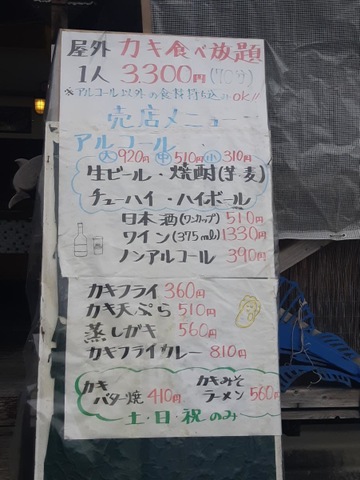 屋外 カキ食べ放題
1人 3,300円(70分)
※アルコール以外の食料持ち込みOK!!
売店メニュー
アルコール
大920円 中510円 小310円
生ビール・焼酎(芋・麦)
チューハイ・ハイボール
日本酒(ワンカップ)510円
ワイン(375ml)1330円
ノンアルコール 390円
カキフライ 360円
カキ天ぷら 510円
蒸しガキ 560円
カキフライカレー 810円
カキバター焼 410円
カキみそラーメン 560円
土・日・祝のみ